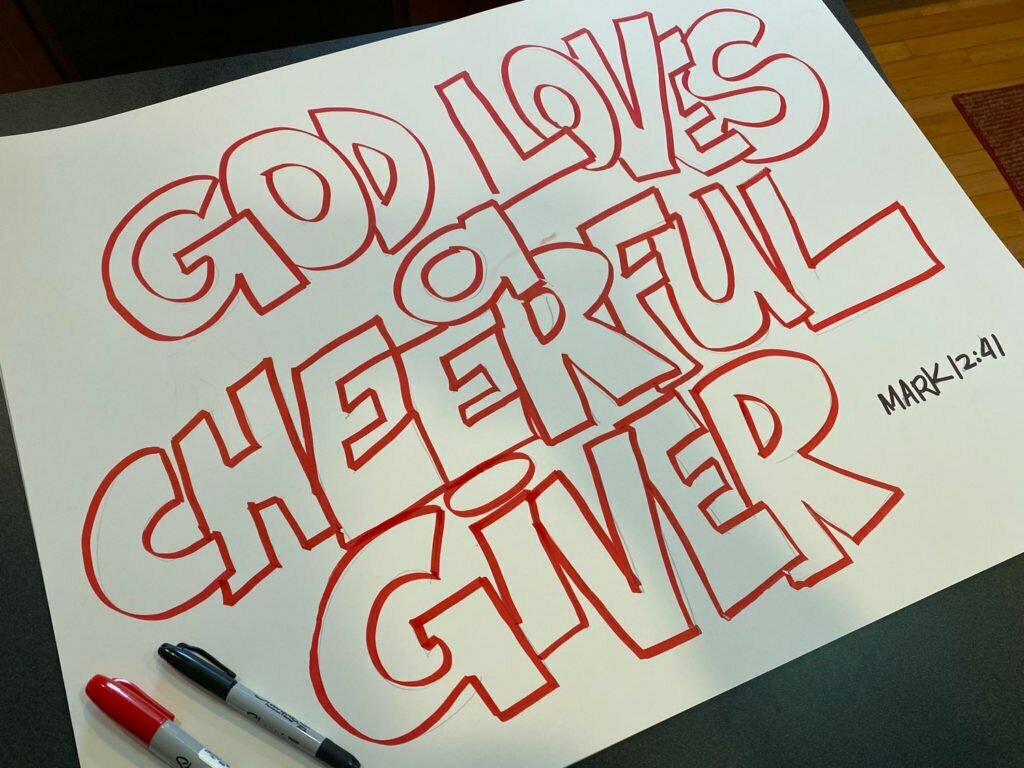 GOD LOVES
a
CHEERFUL
GiVER
MARK 12:41